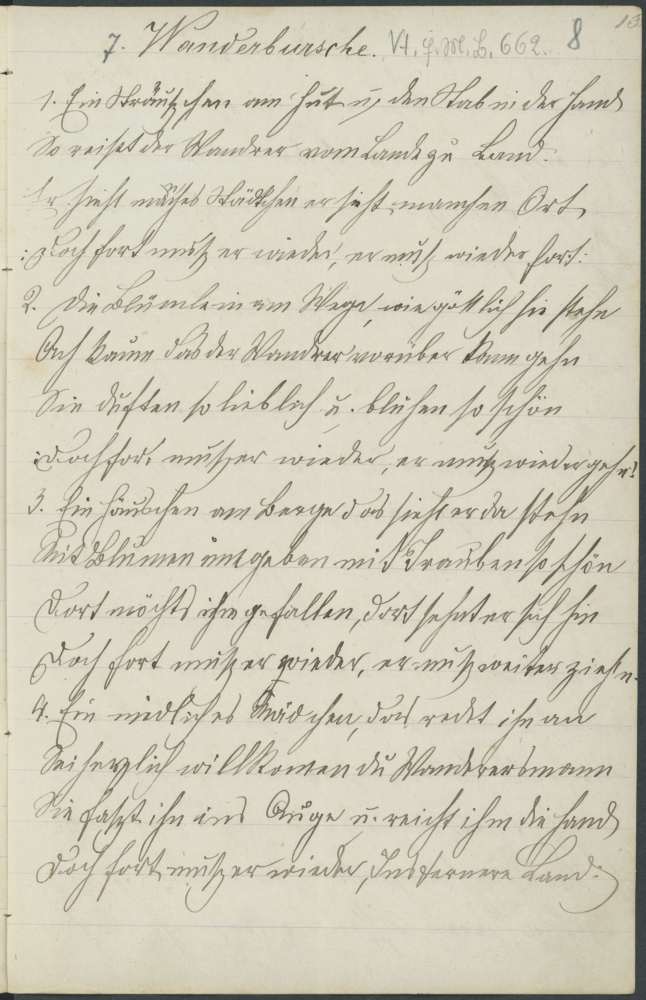 7. Wanderbursche. Vt. f. M. L. 662. 8 13
1. Ein Sträußchen am Hut u, den Stab in der Hand
So reiset der Wandrer vom Lande zu Land.
Er sieht manches Städtchen er sieht manchen Ort
:Doch fort muß er wieder, er muß wieder fort:
2. Die Blümlein am Wege, wie göttlich sie stehn
Ach kaum das der Wandrer vorüber kann gehn
Sie duften so lieblich u. blühen so schön
:Doch fort muß er wieder, er muß wieder gehn:
3. Ein Häuschen am Berge das sieht er da stehn
Mit Blumen umgeben mit Trauben so schön
Dort möchts ihm gefallen, dort sehnt er sich hin
Doch fort muß er wieder, er muß weiter ziehn.
4. Ein niedliches Mädchen, das redet ihn an
Sei herzlich willkomen du Wandersmann
Sie faßt ihn ins Auge u. reicht ihm die Hand
Doch fort muß er wieder, Ins fernere Land: